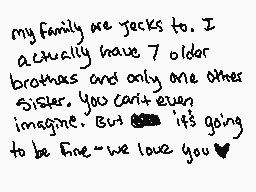 my family are jerks to. I
actually have 7 older
brothers and only one other
sister. You can't even
imagine. But it's going
to be fine - we love you♥